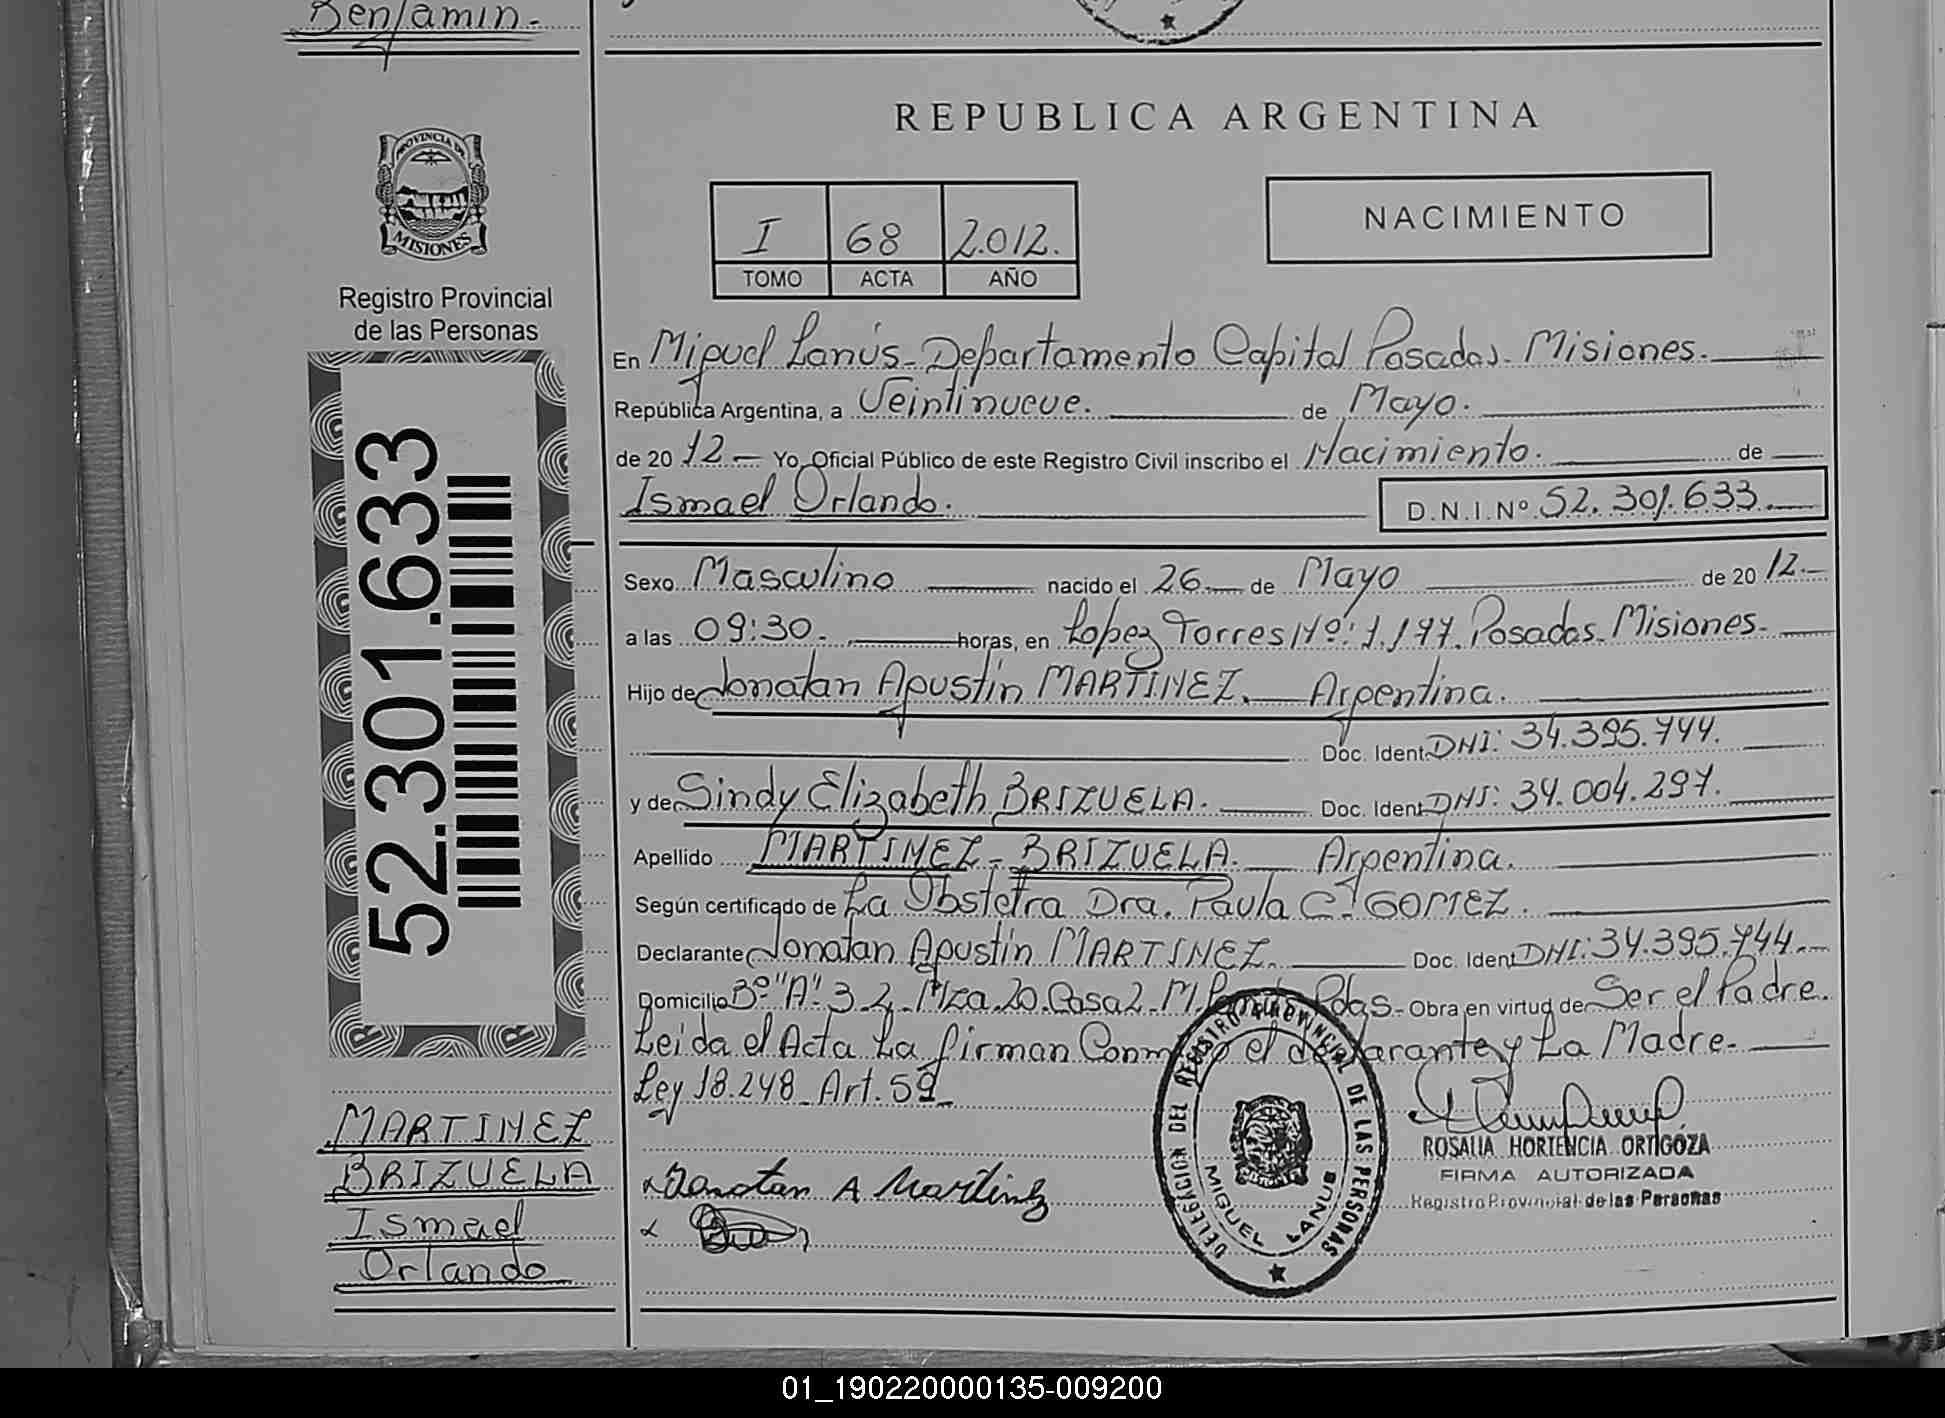 Benjamin.-
REPUBLICA ARGENTINA
PROVINCIA DE
MISIONES
Registro Provincial
de las Personas
NACIMIENTO
I 68 2.012.
TOMO ACTA AÑO
52.301.633
En Miguel Lanús - Departamento Capital Posadas - Misiones.
República Argentina, a Veintinueve. de Mayo.
de 20 12 - Yo Oficial Público de este Registro Civil inscribo el Nacimiento. de
Ismael Orlando. D.N.I.Nº 52.301.633.
Sexo Masculino nacido el 26 de Mayo de 20 12.-
a las 09:30. horas, en Lopez Torres Nº: 1.177. Posadas - Misiones.
Hijo de Jonatan Agustín MARTINEZ. Argentina.
Doc. Ident. DNI: 34.395.744.
y de Sindy Elizabeth BRIZUELA. Doc. Ident. DNI: 34.004.297.
Apellido MARTINEZ - BRIZUELA. Argentina.
Según certificado de La Obstetra Dra. Paula C. GOMEZ.
Declarante Jonatan Agustín MARTINEZ. Doc. Ident. DNI: 34.395.744.-
Domicilio Bº "A" 3 2 - Mza. 20. Casa 2 - M. Lanús - Pdas. - Obra en virtud de Ser el Padre.
Leida el Acta La firman Conmigo el declarante y La Madre.
Ley 18.248 - Art. 5º
MARTINEZ
BRIZUELA
Ismael
Orlando
Jonatan A Martinez
DELEGACION DEL REGISTRO PROVINCIAL DE LAS PERSONAS
MIGUEL LANUS
ROSALIA HORTENCIA ORTIGOZA
FIRMA AUTORIZADA
Registro Provincial de las Personas
01_190220000135-009200